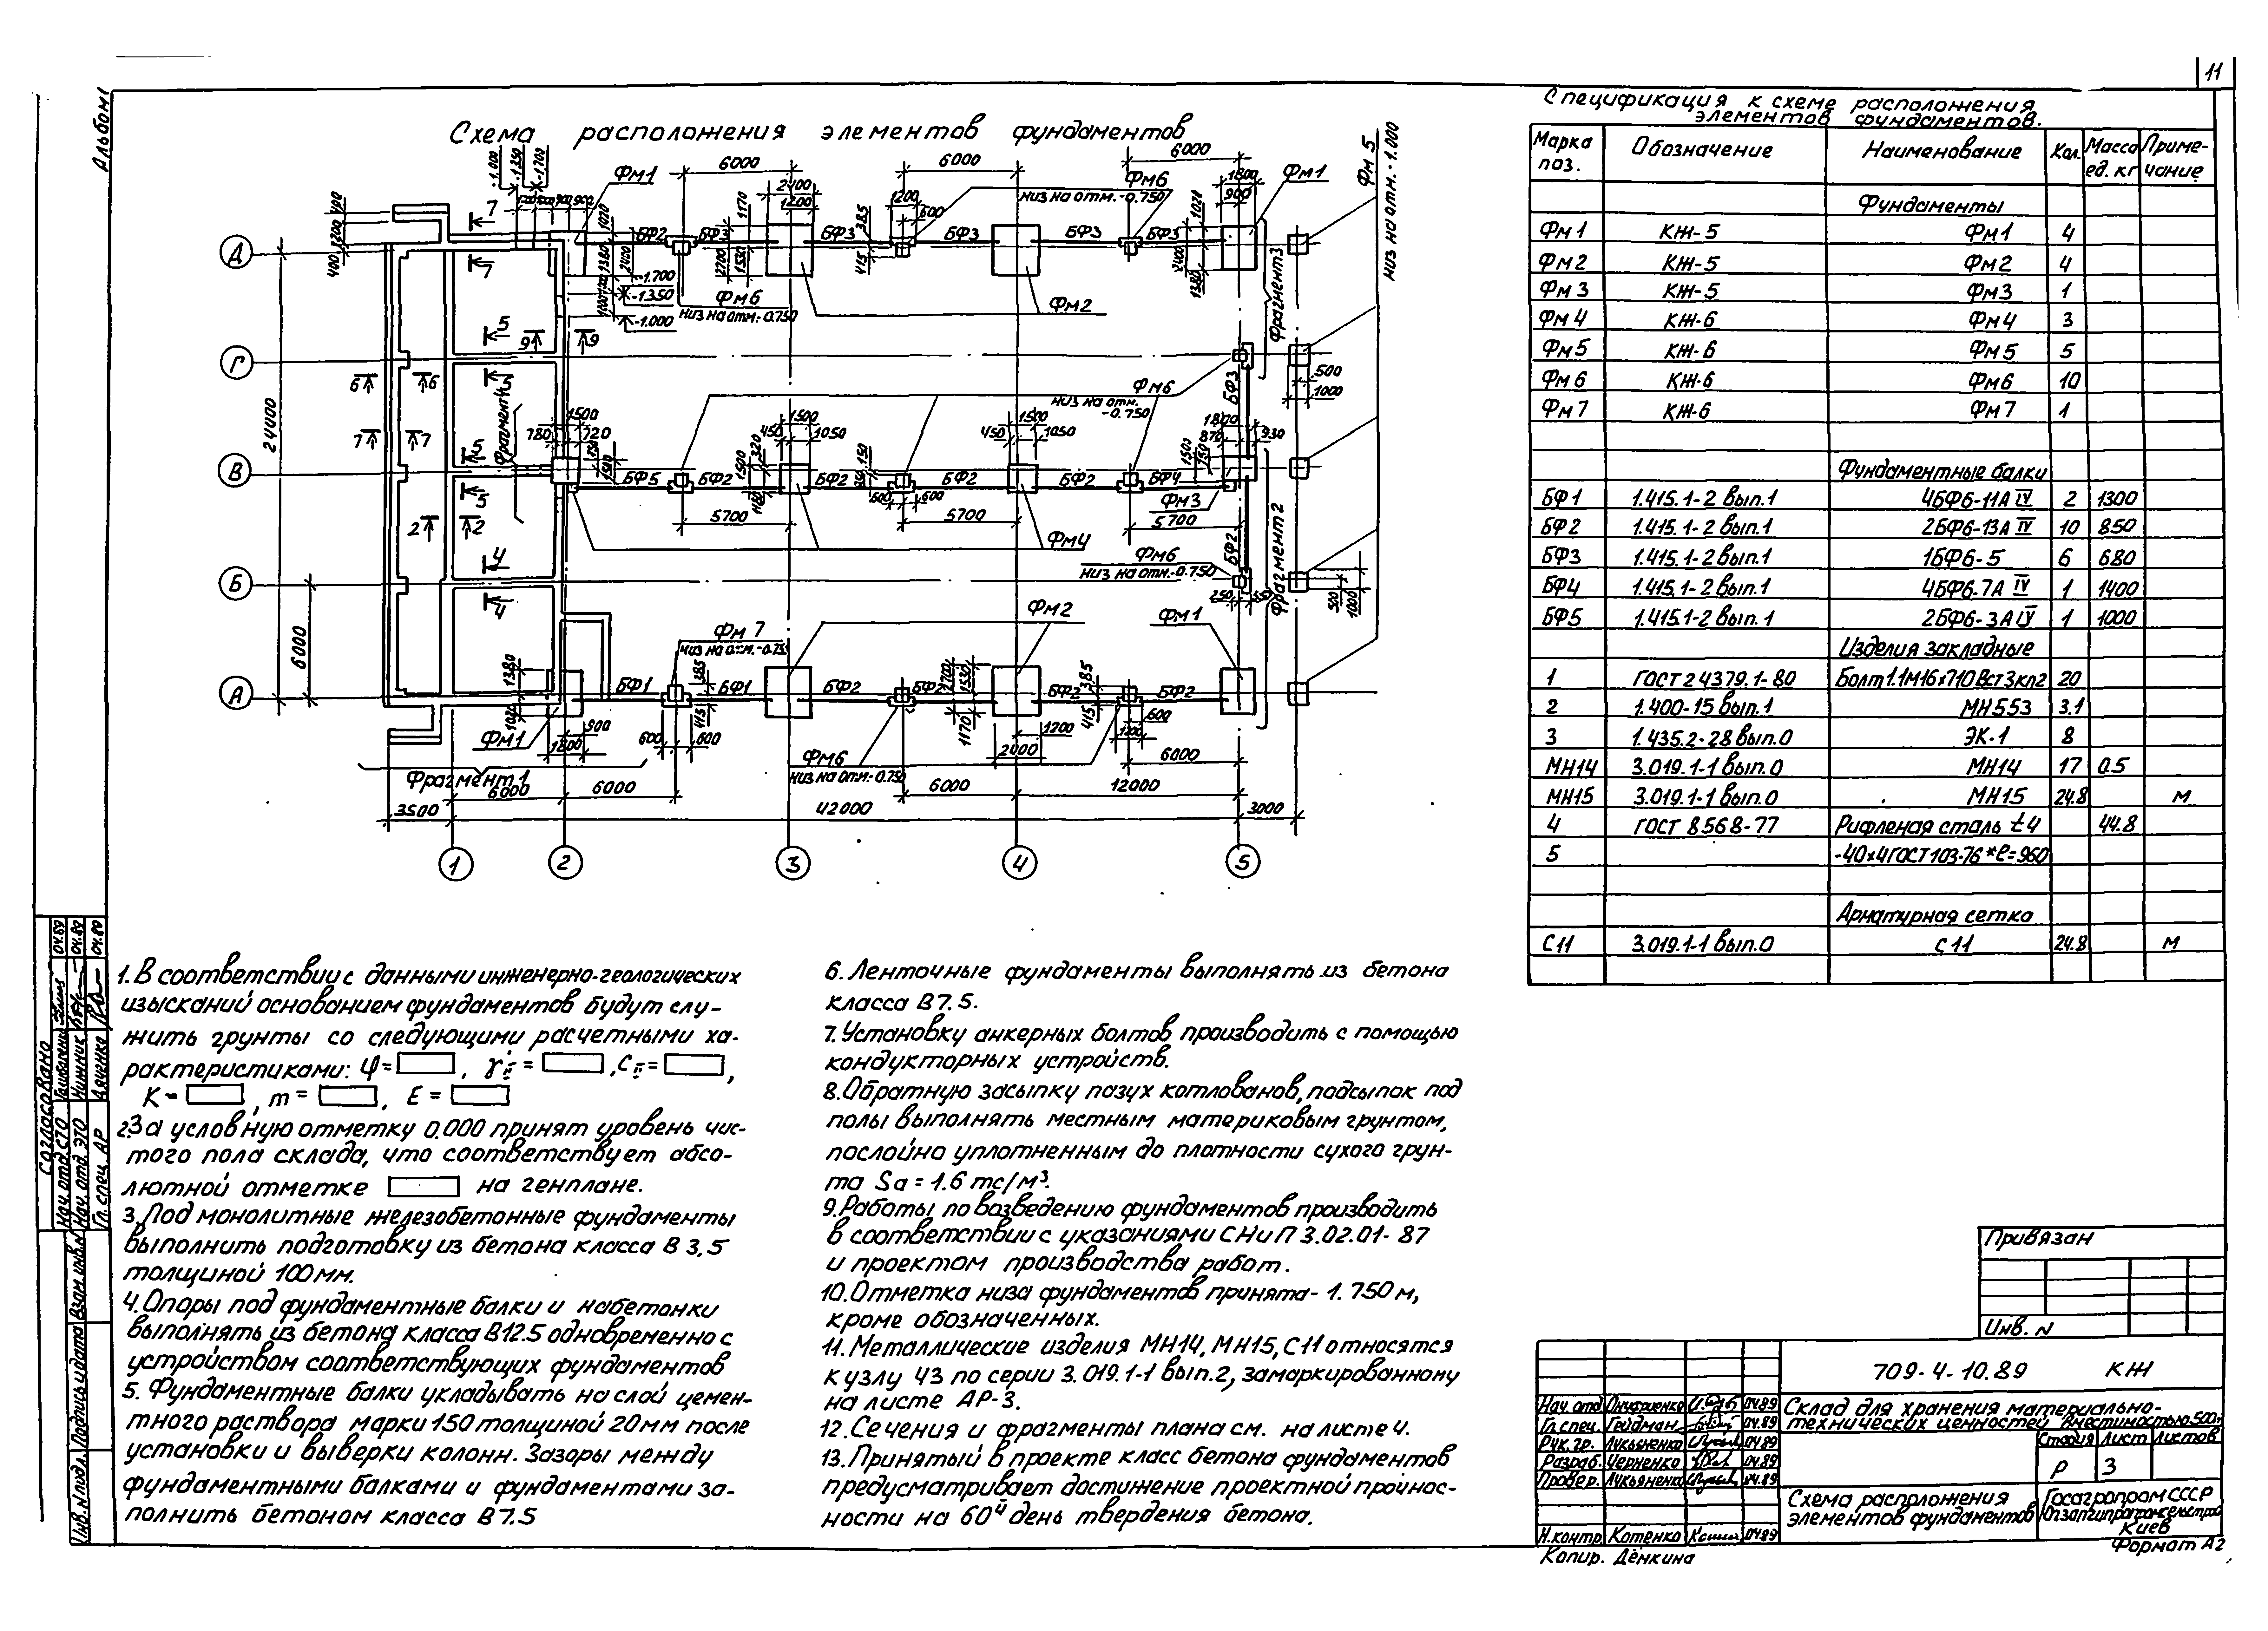 11
Альбом I
Схема расположения элементов фундаментов
-1.000
-1.350
-1.700
Фм1
6000
6000
6000
Фм6
низ на отм.-0.750
Фм1
Фм 5
низ на отм.-1.000
2400
1200
1170
1200
600
385
1800
900
1020
400
1200
400
7
7
Д
БФ2
БФ3
БФ3
БФ3
БФ3
БФ3
1020
1380
2400
2700
1530
415
2400
1380
-1.700
-1.350
-1.000
Фм6
низ на отм.-0.750
Фм2
Фрагмент3
5
9
9
Г
6
6
5
Фм6
низ на отм.
-0.750
БФ3
500
1000
24000
Фрагмент4
1500
780
720
1500
450
1050
1500
450
1050
1870
870
930
7
7
5
В
БФ5
БФ2
БФ2
БФ2
БФ2
БФ4
Фм3
1500
320
150
600
600
1500
5
2
2
5700
5700
5700
Фм4
Фм6
низ на отм.-0.750
БФ2
Фрагмент 2
4
Б
4
250
500
1000
6000
Фм 7
низ на отм.-0.750
Фм2
Фм1
1380
385
1700
1530
385
А
БФ1
БФ1
БФ2
БФ2
БФ2
БФ2
1020
415
1170
415
Фм1
900
1800
600
600
Фм6
низ на отм.-0.750
2400
1200
600
1200
6000
Фрагмент1
6000
6000
6000
12000
3500
42000
3000
1
2
3
4
5
1. В соответствии с данными инженерно-геологических
изысканий основанием фундаментов будут слу-
жить грунты со следующими расчетными ха-
рактеристиками: φ= , γII = , CII= ,
К= , m= , Е=
2. За условную отметку 0.000 принят уровень чис-
того пола склада, что соответствует абсо-
лютной отметке на генплане.
3. Под монолитные железобетонные фундаменты
выполнить подготовку из бетона класса В 3,5
толщиной 100мм.
4. Опоры под фундаментные балки и набетонки
выполнять из бетона класса В12.5 одновременно с
устройством соответствующих фундаментов
5. Фундаментные балки укладывать на слой цемен-
тного раствора марки 150 толщиной 20мм после
установки и выверки колонн. Зазоры между
фундаментными балками и фундаментами за-
полнить бетоном класса В 7.5
6. Ленточные фундаменты выполнять из бетона
класса В 7.5.
7. Установку анкерных болтов производить с помощью
кондукторных устройств.
8. Обратную засыпку пазух котлованов, подсыпок под
полы выполнять местным материковым грунтом,
послойно уплотненным до плотности сухого грун-
та Sa = 1.6 тс/м³.
9. Работы по возведению фундаментов производить
в соответствии с указаниями СНиП 3.02.01-87
и проектом производства работ.
10. Отметка низа фундаментов принята -1.750 м,
кроме обозначенных.
11. Металлические изделия МН14, МН15, С11 относятся
к узлу 43 по серии 3.019.1-1 вып.2, замаркированному
на листе АР-3.
12. Сечения и фрагменты плана см. на листе 4.
13. Принятый в проекте класс бетона фундаментов
предусматривает достижение проектной прочнос-
ти на 60й день твердения бетона.
Спецификация к схеме расположения
элементов фундаментов.
Марка поз. Обозначение Наименование Кол. Масса ед. кг Приме-чание
Фундаменты
Фм 1 КЖ-5 Фм1 4
Фм 2 КЖ-5 Фм2 4
Фм 3 КЖ-5 Фм3 1
Фм 4 КЖ-6 Фм4 3
Фм 5 КЖ-6 Фм5 5
Фм 6 КЖ-6 Фм6 10
Фм 7 КЖ-6 Фм7 1
Фундаментные балки
БФ 1 1.415.1-2 вып.1 4БФ6-11А IV 2 1300
БФ2 1.415.1-2 вып.1 2БФ6-13А IV 10 850
БФ3 1.415.1-2 вып.1 1БФ6-5 6 680
БФ4 1.415.1-2 вып.1 4БФ6-7А IV 1 1400
БФ5 1.415.1-2 вып.1 2БФ6-3А IV 1 1000
Изделия закладные
1 ГОСТ 24379.1-80 Болт 1.1М16х710 Вст3кп2 20
2 1.400-15 вып.1 МН553 3.1
3 1.435.2-28 вып.0 ЭК-1 8
МН14 3.019.1-1 вып.0 МН14 17 0.5
МН15 3.019.1-1 вып.0 МН15 24.8 м
4 ГОСТ 8568-77 Рифленая сталь t4 44.8
5 -40х4 ГОСТ 103-76* ℓ=960
Арматурная сетка
С11 3.019.1-1 вып.0 С11 24.8 м
Привязан
Инв. N
709-4-10.89 КЖ
Нач. отд. Онуфриенко 04.89
Гл. спец. Гейдман 04.89
Рук. гр. Лукьяненко 04.89
Разраб. Черненко 04.89
Провер. Лукьяненко 04.89
Н.контр. Котенко 04.89
Склад для хранения материально-
технических ценностей вместимостью 500т
Стадия Лист Листов
Р 3
Схема расположения
элементов фундаментов
Госагропром СССР
Киев
Копир. Дёнкина
Формат А2
Согласовано
Нач. отд. СТО 04.89
Нач. отд. ЭТО Нижник 04.89
Гл. спец. АР Дяченко 04.89
Инв. N подл. Подпись и дата Взам. инв. N